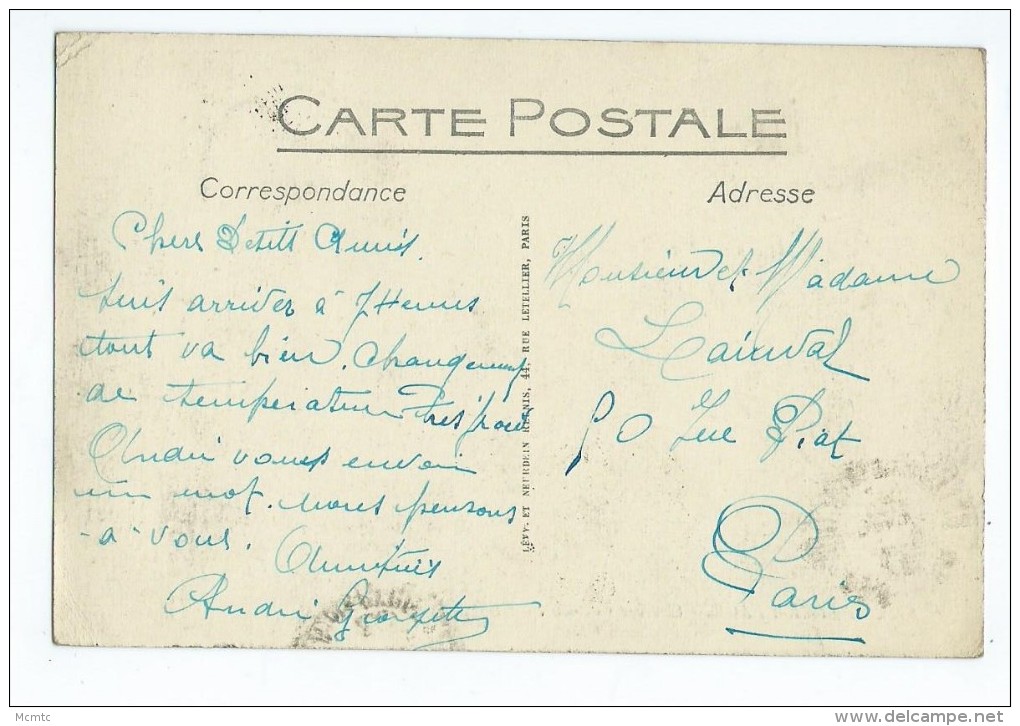 CARTE POSTALE
Correspondance
Chers Petits Amis.
suis arriver à 7 Heures
tout va bien. Changement
de temperature Très froid
André vous envoie
un mot. nous pensons
à vous.
Amitiés
André Georgette
LÉVY ET NEURDEIN RÉUNIS, 44, RUE LETELLIER, PARIS
Adresse
Monsieur et Madame
90 Rue Piat
Paris
Mcmtc
delcampe.net